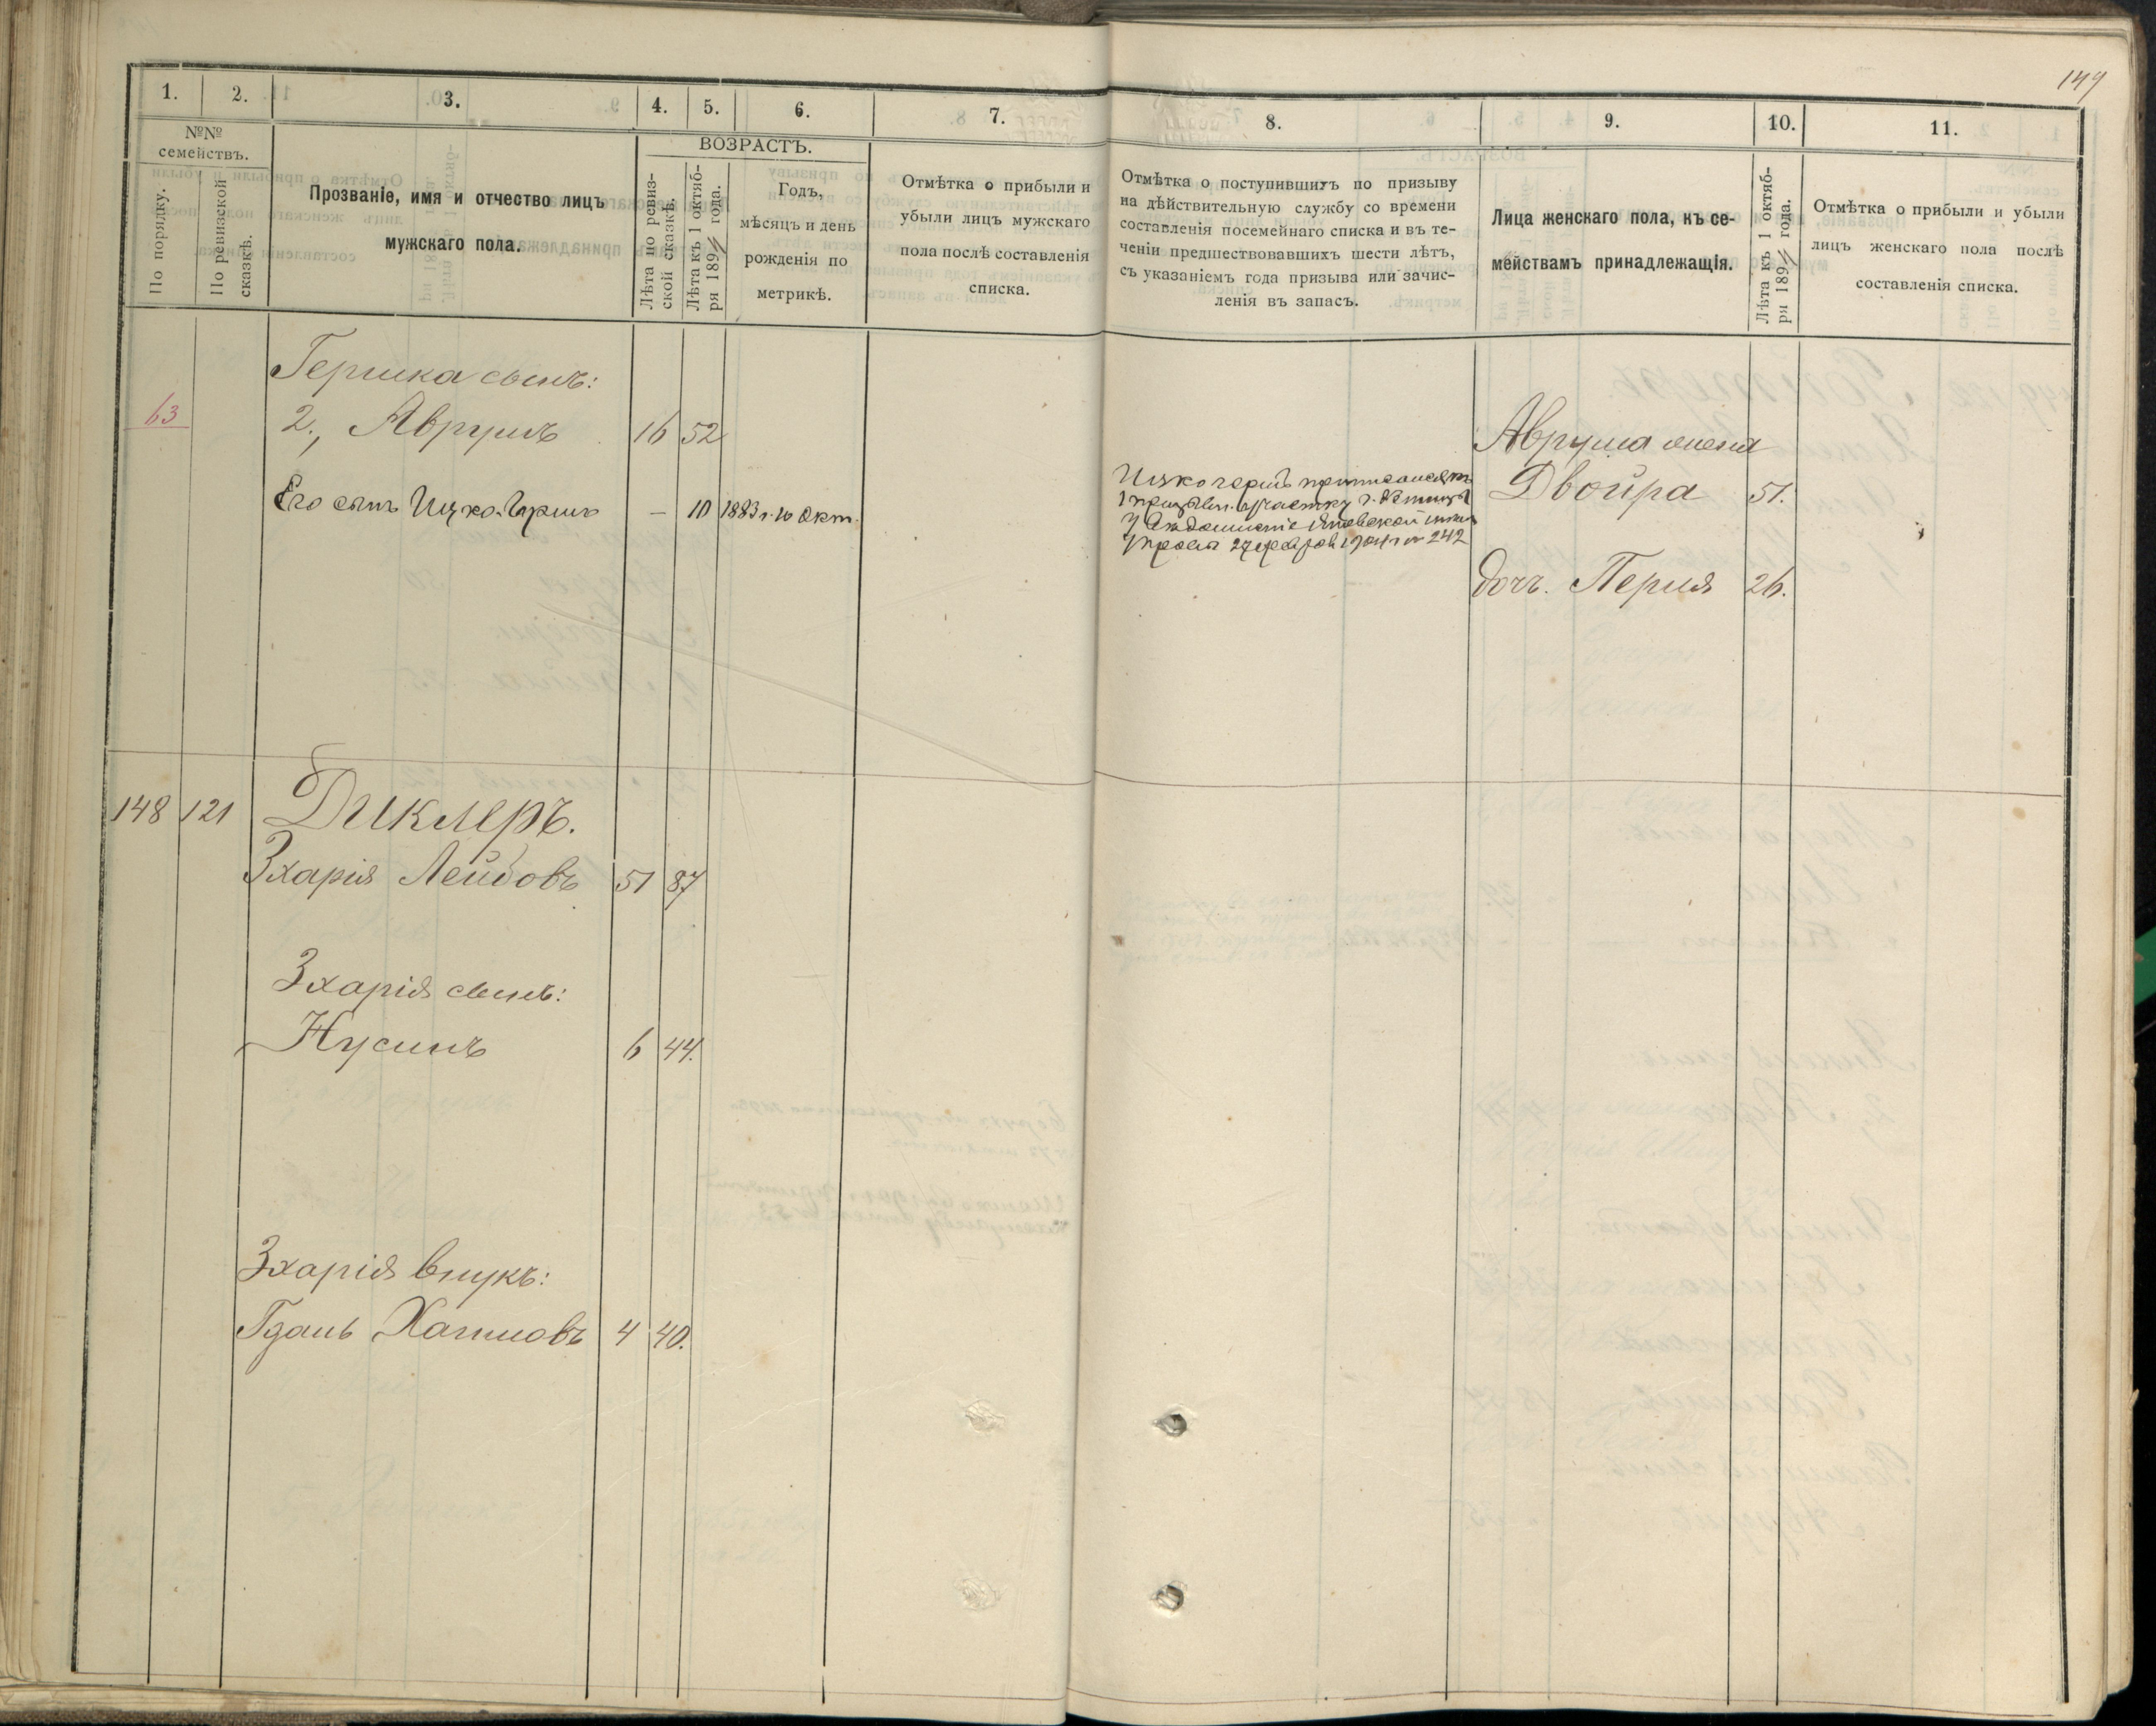 149
1. 2. 3. 4. 5. 6. 7. 8. 9. 10. 11.
№№
семействъ.
По порядку.
По ревизской
сказкѣ.
Прозваніе, имя и отчество лицъ
мужскаго пола.
ВОЗРАСТЪ.
Лѣта по ревиз-
ской сказкѣ.
Лѣта къ 1 октяб-
ря 189 года.
Годъ,
мѣсяцъ и день
рожденія по
метрикѣ.
Отмѣтка о прибыли и
убыли лицъ мужскаго
пола послѣ составленія
списка.
Отмѣтка о поступившихъ по призыву
на дѣйствительную службу со времени
составленія посемейнаго списка и въ те-
ченіи предшествовавшихъ шести лѣтъ,
съ указаніемъ года призыва или зачис-
ленія въ запасъ.
Лица женскаго пола, къ се-
мействамъ принадлежащія.
Лѣта къ 1 октяб-
ря 189 года.
Отмѣтка о прибыли и убыли
лицъ женскаго пола послѣ
составленія списка.
Гершка сынъ:
63 2., Аврумъ 16 52
Аврума жена
Его сынъ Ицко-Гершъ — 10 1883 г. 10 Окт.
Двойра 51.
Ицко Гершъ приписанъ къ
1 призывн. участку г.
242
дочь Перля 26.
148 121 Диклеръ.
Зхарія Лейбовъ 51 87
Зхарія сынъ:
Нусинъ 6 44.
Зхарія внукъ:
Гдаль Хаимовъ 4 40.